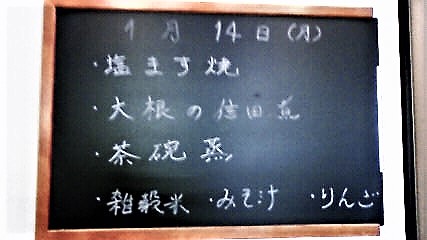 1月14日(月)
・塩ます焼
・大根の信田煮
・茶碗蒸
・雑穀米 ・みそ汁 ・りんご